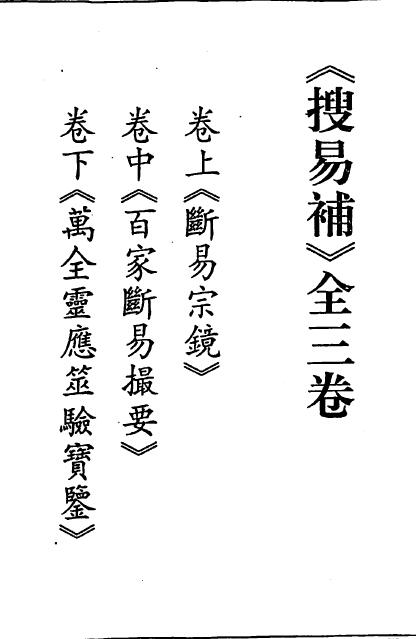 《搜易補》全三卷
卷上《斷易宗鏡》
卷中《百家斷易撮要》
卷下《萬全靈應筮驗寶鑒》